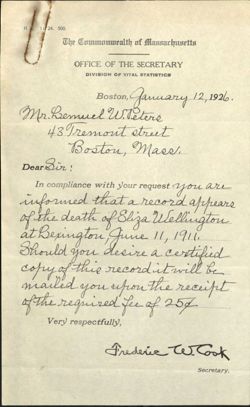 The Commonwealth of Massachusetts
OFFICE OF THE SECRETARY
DIVISION OF VITAL STATISTICS
Boston, January 12, 1926.
Mr. Lemuel W. Peters
43 Tremont street
Boston, Mass.
Dear Sir:
In compliance with your request you are
informed that a record appears
of the death of Eliza Wellington
at Lexington, June 11, 1911.
Should you desire a certified
copy of this record it will be
mailed you upon the receipt
of the required fee of 25¢
Very respectfully,
Frederic W. Cook
Secretary.